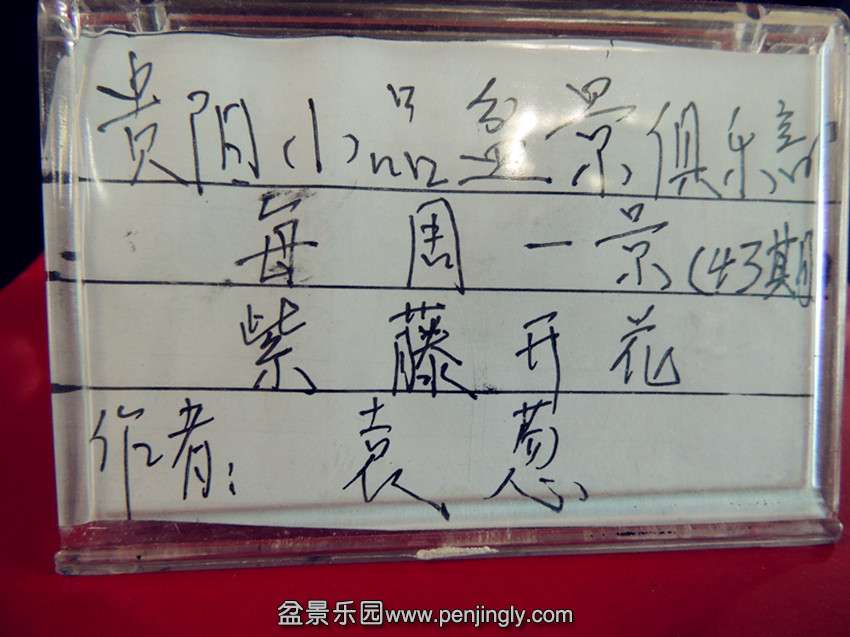 贵阳小品盆景俱乐部
每周一景(43期
紫藤开花
作者:袁葱
盆景乐园www.penjingly.com